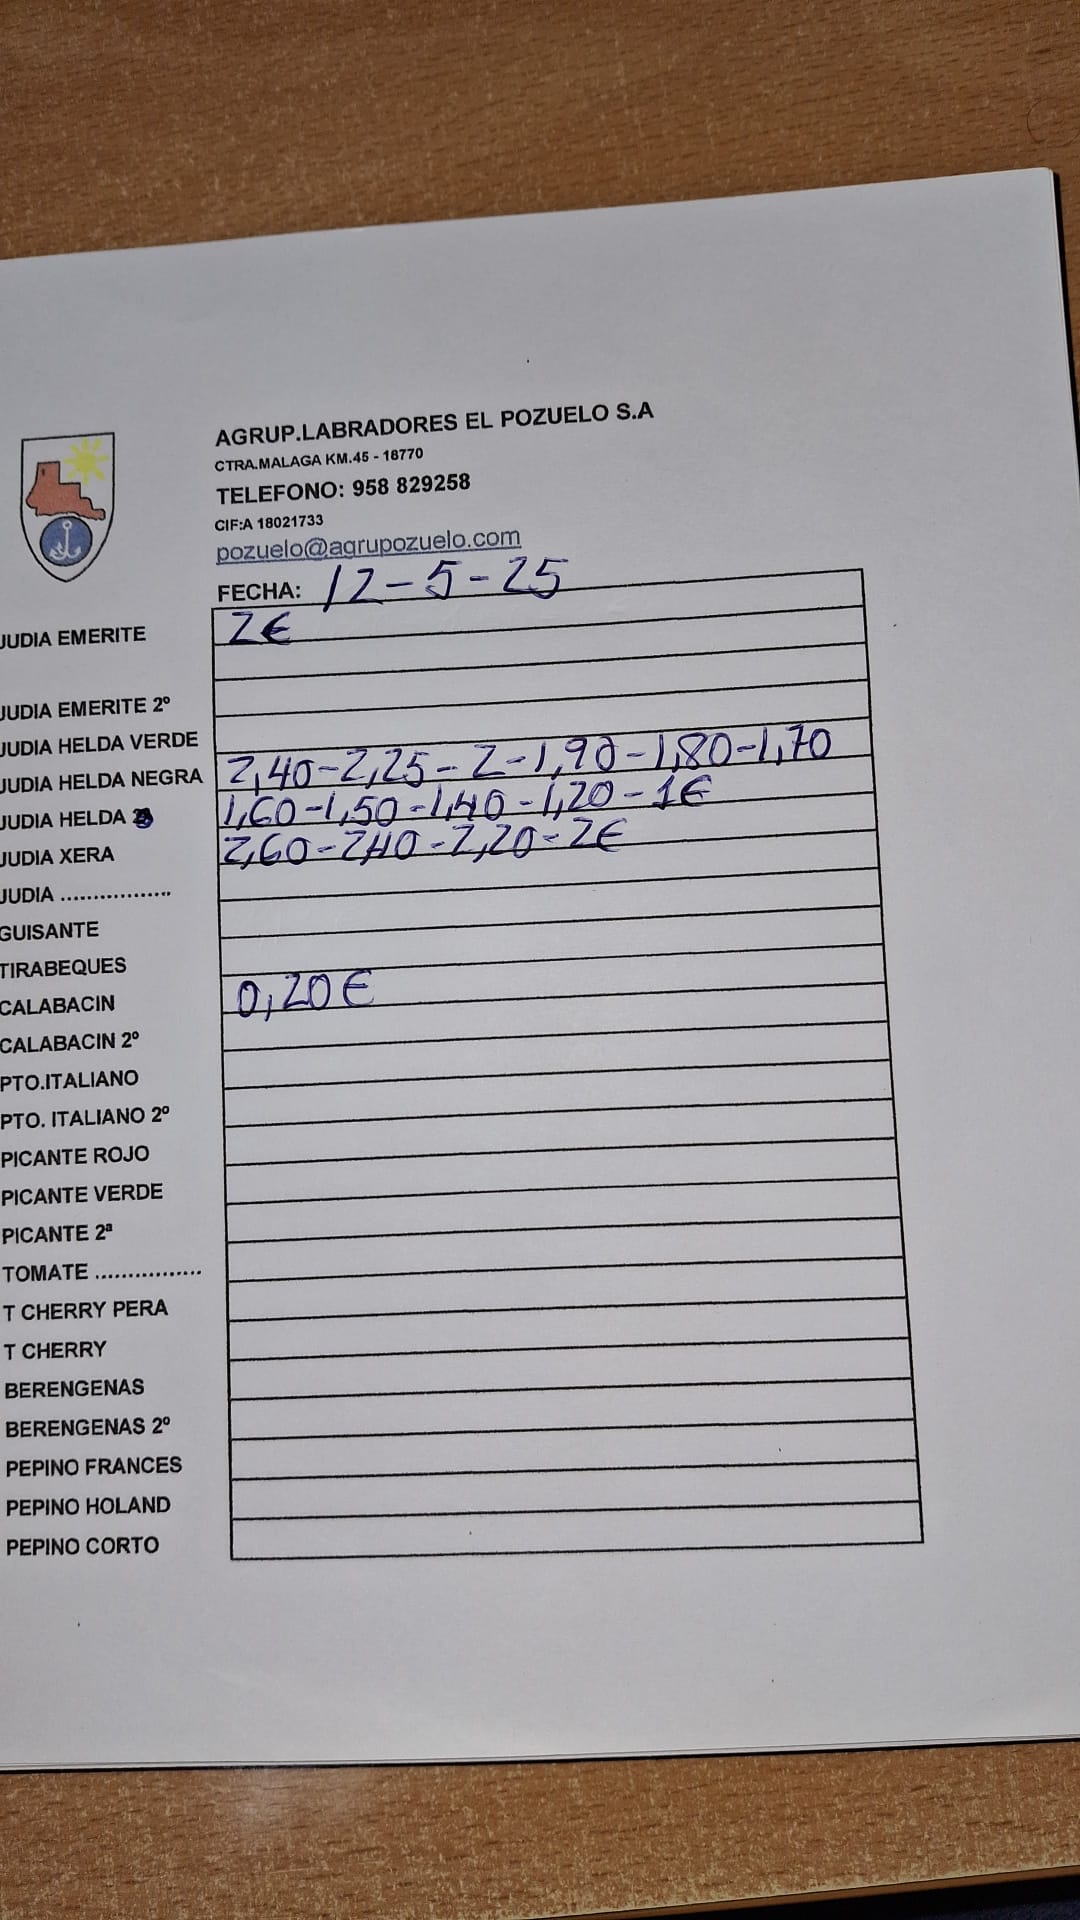 AGRUP.LABRADORES EL POZUELO S.A
CTRA.MALAGA KM.45 - 18770
TELEFONO: 958 829258
CIF:A 18021733
pozuelo@agrupozuelo.com
FECHA: 12-5-25
JUDIA EMERITE 2€
JUDIA EMERITE 2º
JUDIA HELDA VERDE
JUDIA HELDA NEGRA 2,40-2,25-2-1,90-1,80-1,70
JUDIA HELDA 1,60-1,50-1,40-1,20-1€
JUDIA XERA 2,60-2,40-2,20-2€
JUDIA .................
GUISANTE
TIRABEQUES
CALABACIN 0,20€
CALABACIN 2º
PTO.ITALIANO
PTO. ITALIANO 2º
PICANTE ROJO
PICANTE VERDE
PICANTE 2ª
TOMATE ................
T CHERRY PERA
T CHERRY
BERENGENAS
BERENGENAS 2º
PEPINO FRANCES
PEPINO HOLAND
PEPINO CORTO